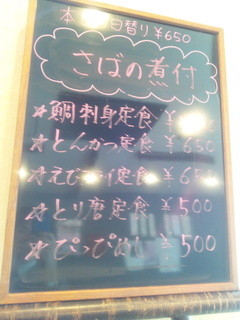 本 日替り ¥650
さばの煮付
☆鯛刺身定食 ¥
☆とんかつ定食 ¥650
☆えびフライ定食 ¥650
☆とり磨定食 ¥500
☆ぴっぴめし ¥500